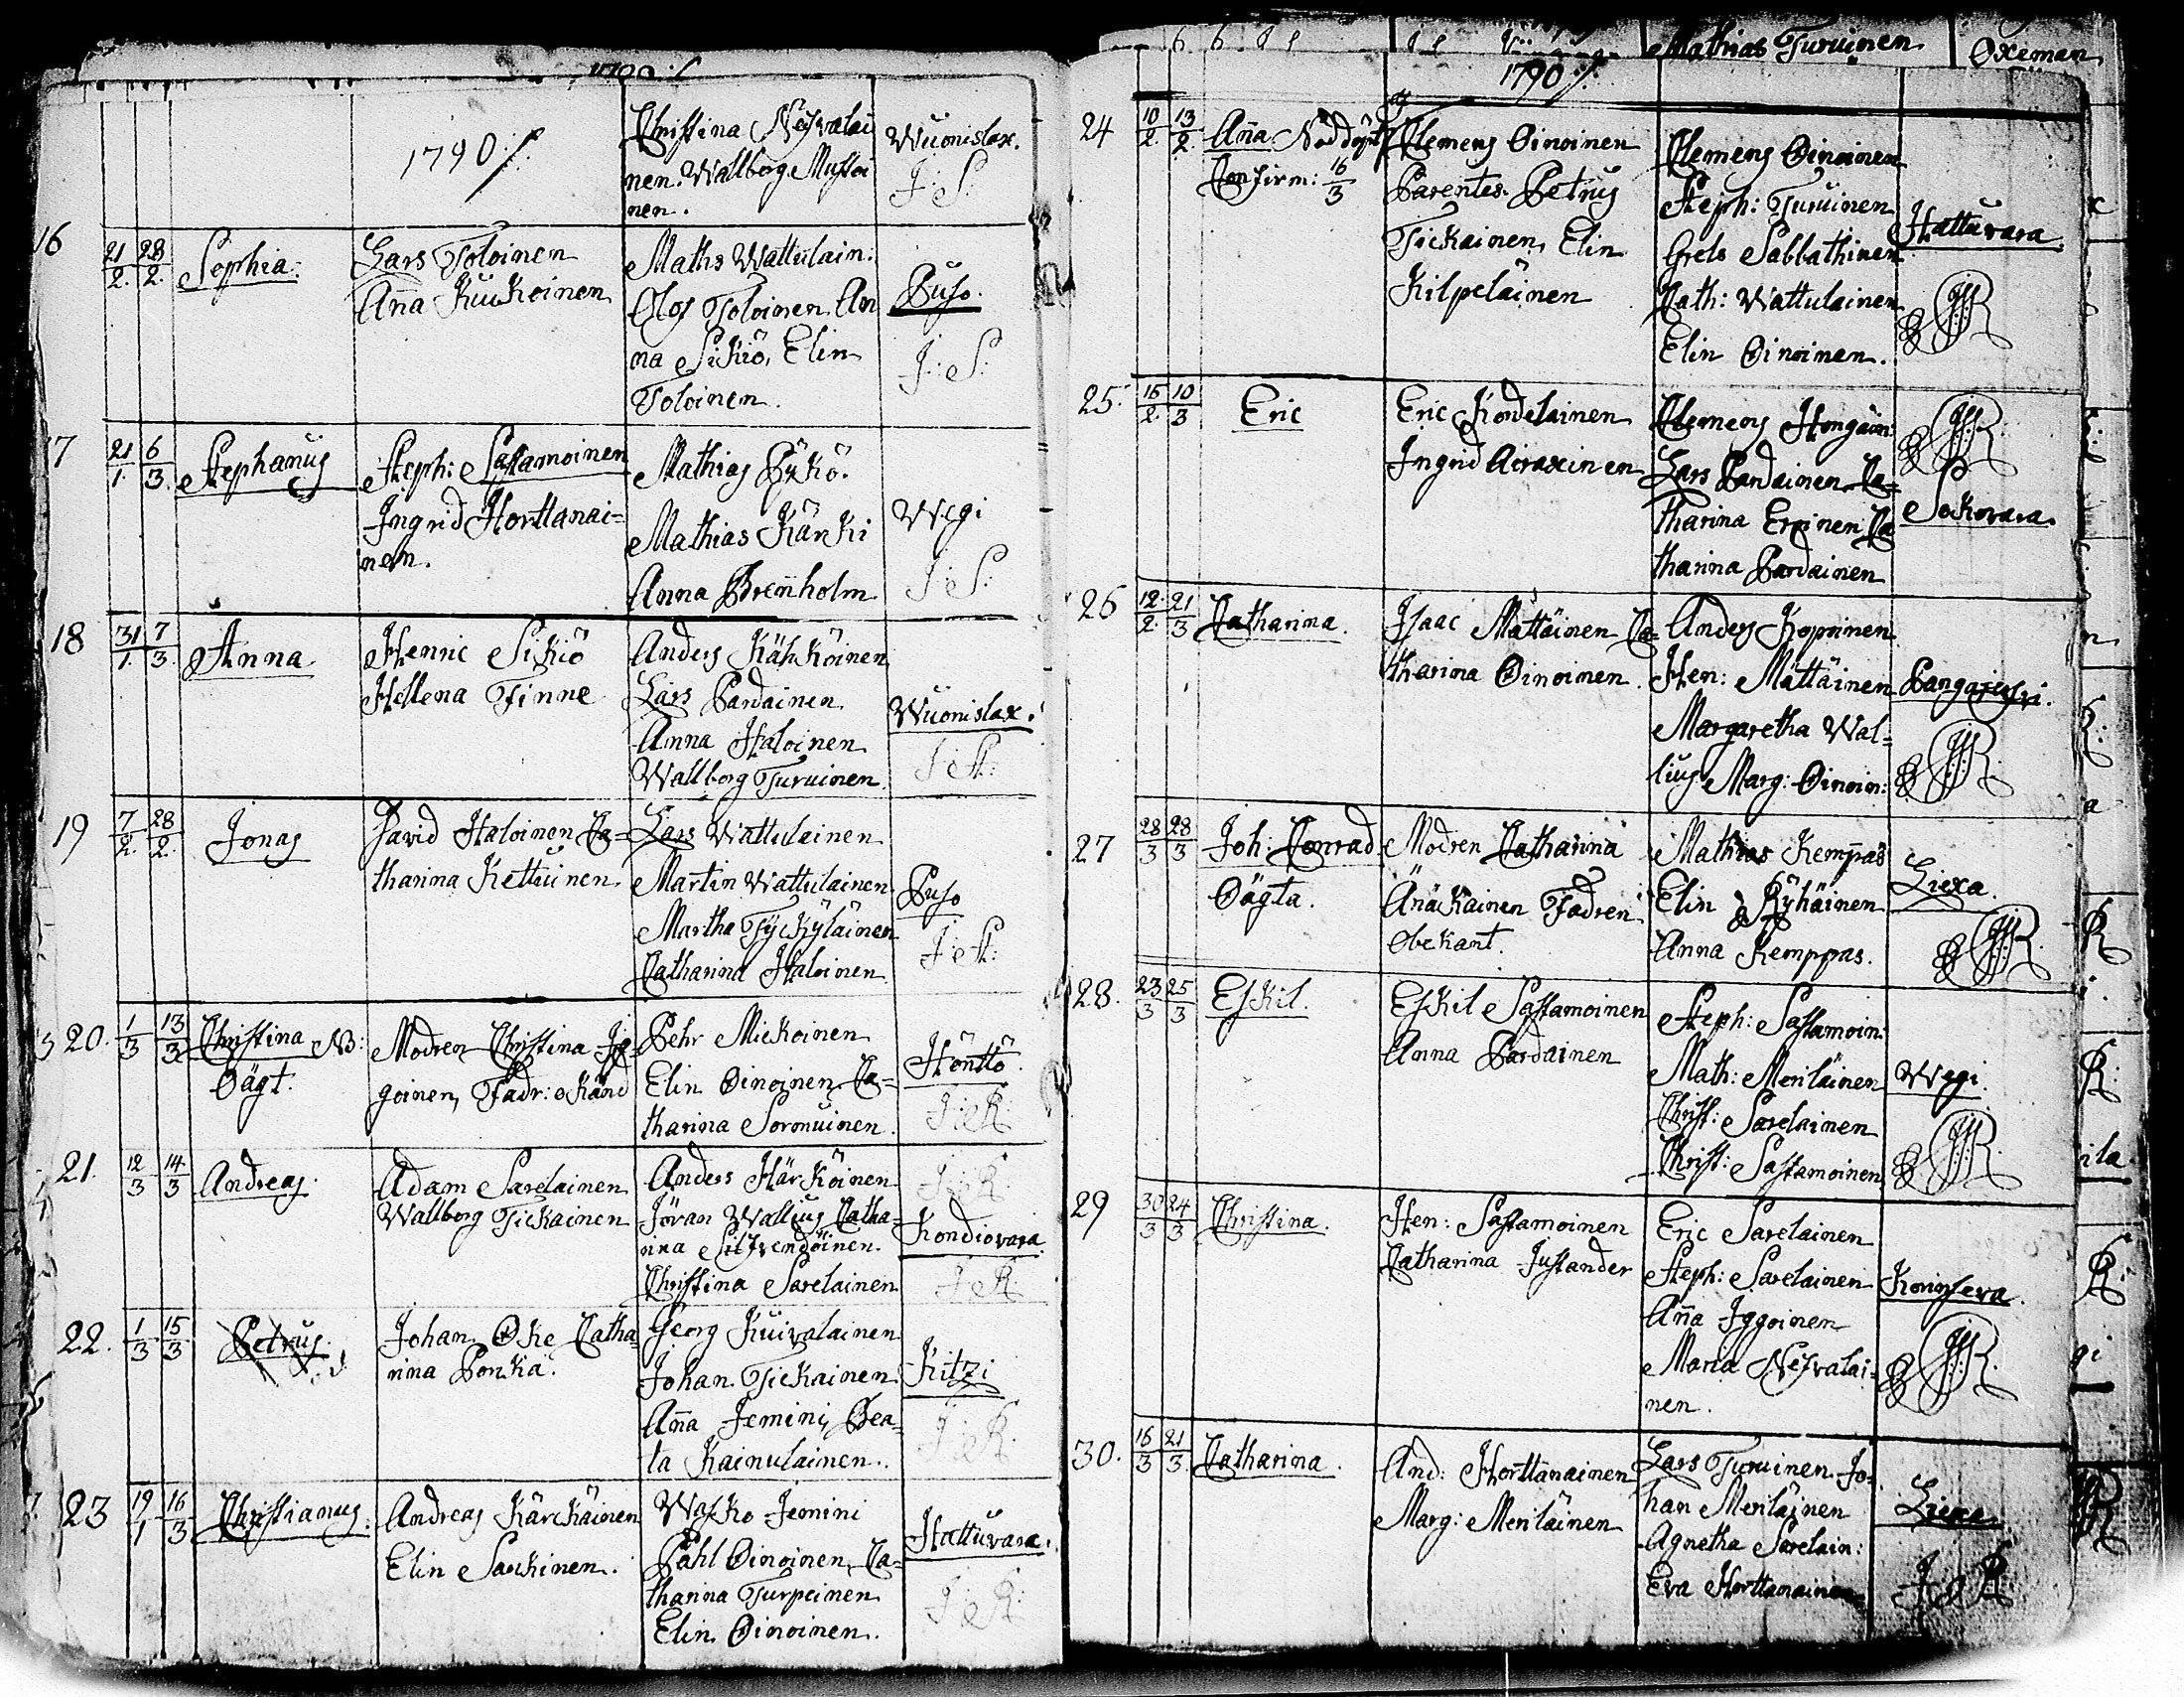 1790 ./.
Christina Nesvalai
nen. Wallborg Mustoi
nen.
Wuonislax.
J: S:
16
21/2. 28/2.
Sophia.
Lars Toloinen
Aña Kuukoinen
Maths Wattulain:
Olof Toloinen. An
na Sikiö, Elin
Toloinen.
Puso.
J: S:
17
21/1. 6/3.
Stephanus
Steph: Sastamoinen
Ingrid Horttanai=
nen.
Mathias Pykö.
Mathias Kärki
Anna Brenholm
Wegi
J: S:
18
31/1. 7/3.
Anna
Henric Sikiö
Hellena Finne
Anders Kähköinen
Lars Pardainen
Anna Haloinen
Wallborg Turuinen
Wuonislax.
J: St:
19
7/2. 28/2.
Jonas
David Haloinen Ca=
tharina Kettuinen.
Lars Wattulainen
Martin Wattulainen
Martha Tyckyläinen
Catharina Haloinen
Puso
J: St:
20.
1/3 13/3
Christina NB:
Oägt.
Modren Christina Ig=
goinen, Fadr: okänd
Pehr Mickoinen
Elin Oinoinen Ca=
tharina Soromuinen.
Hönttö.
J: R:
21.
12/3 14/3
Andreas.
Adam Sarelainen
Wallborg Tickainen
Anders Härköinen
Jöran Wallius Catha=
rina
Christina Sarelainen
J: R:
Kondiovara
J: R:
22.
1/3 15/3
Petrus.
Johan Oke Catha=
rina Ponka.
Georg Kuivalainen
Johan Tickainen
Aña Jemini, Bea=
ta Kainulainen.
Kitzi
J: R:
23
19/1 16/3
Christianus.
Andreas Kärckäinen
Elin Sarkinen.
Wasko Jemini
Påhl Oinoinen, Ca=
tharina Turpeinen
Elin Oinoinen.
Hattuvara.
J: R:
Mathias Turuinen
Oxeman
1790 ./.
24
10/2. 13/2.
Aña Nöddöpt
Confirm: 16/3
Clemens Oinoinen
Parentes. Petrus
Tickainen, Elin
Kilpeläinen
Clemens Oinoinen
Steph: Turuinen
Grels Sabbathinen
Cath: Wattulainen
Elin Oinoinen.
Hattuvara.
25.
15/2. 10/3
Eric
Eric Kordelainen
Ingrid Acraxinen
Clemens Hongain:
Lars Pardainen Ca=
tharina Eroinen Ca
tharina Pardainen
Sokovara.
26
12./2. 21/3
Catharina.
Isaac Mättäinen Ca=
tharina Oinoinen.
Anders Kopoinen
Hen: Mättäinen
Margaretha Wal=
lius Marg: Oinoin:
Pangajerfvi.
27
28/3 28/3
Joh: Conrad
Oägta.
Modren Catharina
Änäkainen Fadren
obekant.
Mathias Kemppas
Elin Ryhäinen
Anna Kemppas.
Liexa.
28.
23/3 25/3
Eskil.
Eskil Sastamoinen
Anna Pardainen
Steph: Sastamoin:
Math: Meriläinen
Christ: Sarelainen
Christ: Sastamoinen
Wegi.
29
30/3 24/3
Christina.
Hen: Sastamoinen
Catharina Justander
Eric Sarelainen
Steph: Sarelainen
Aña Iggoinen
Maria Nesvalai=
nen.
30.
16/3 21/3.
Catharina.
And: Horttanainen
Marg: Meriläinen
Lars Turuinen. Jo=
han Meriläinen
Agnetha Sarelain:
Eva Horttanainen
Liexa.
J: R